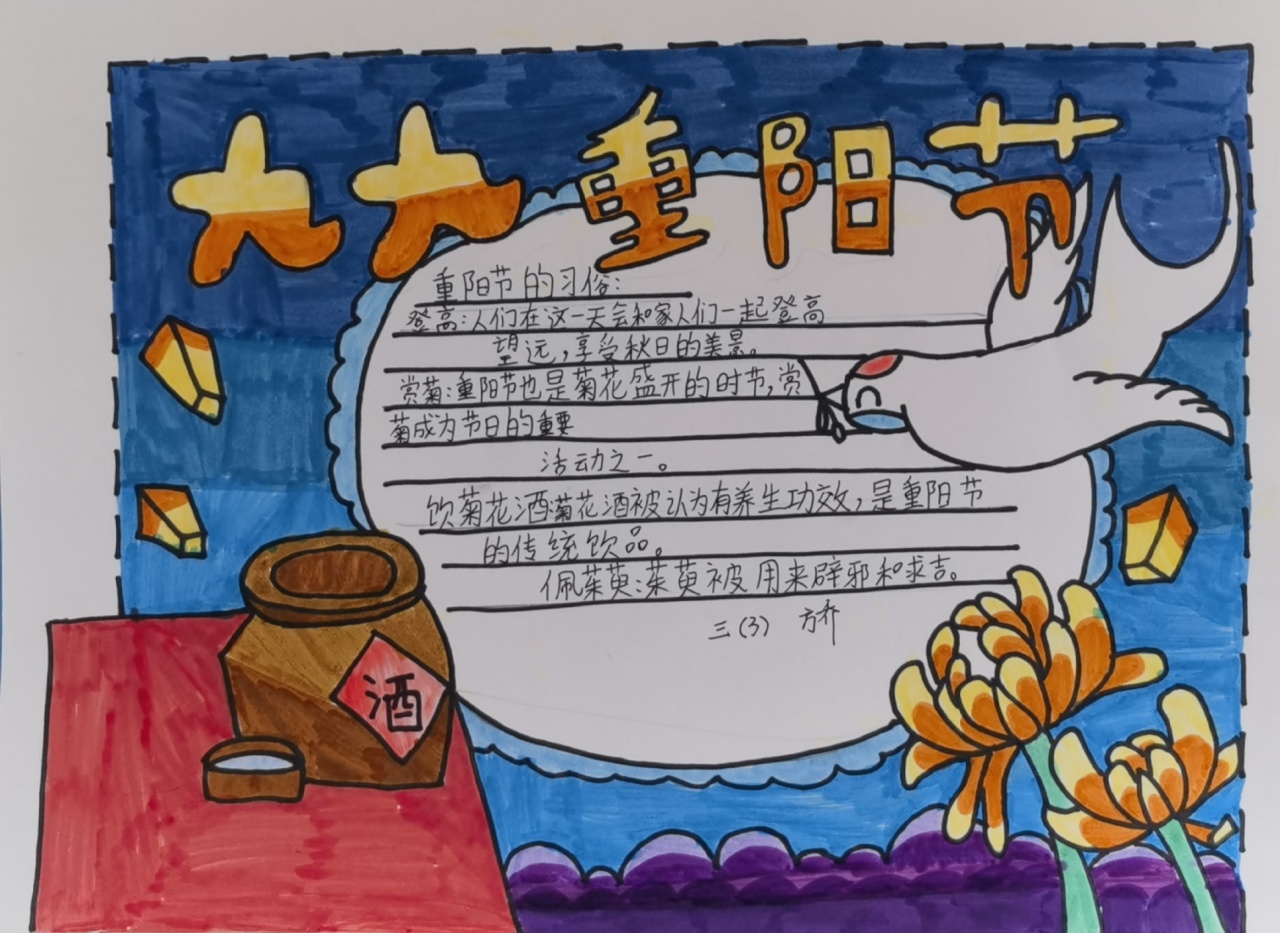 九九重阳节
重阳节的习俗:
登高:人们在这一天会和家人们一起登高
望远,享受秋日的美景。
赏菊:重阳节也是菊花盛开的时节,赏
菊成为节日的重要
活动之一。
饮菊花酒:菊花酒被认为有养生功效,是重阳节
的传统饮品。
佩茱萸:茱萸被用来辟邪和求吉。
三(3) 方乔
酒